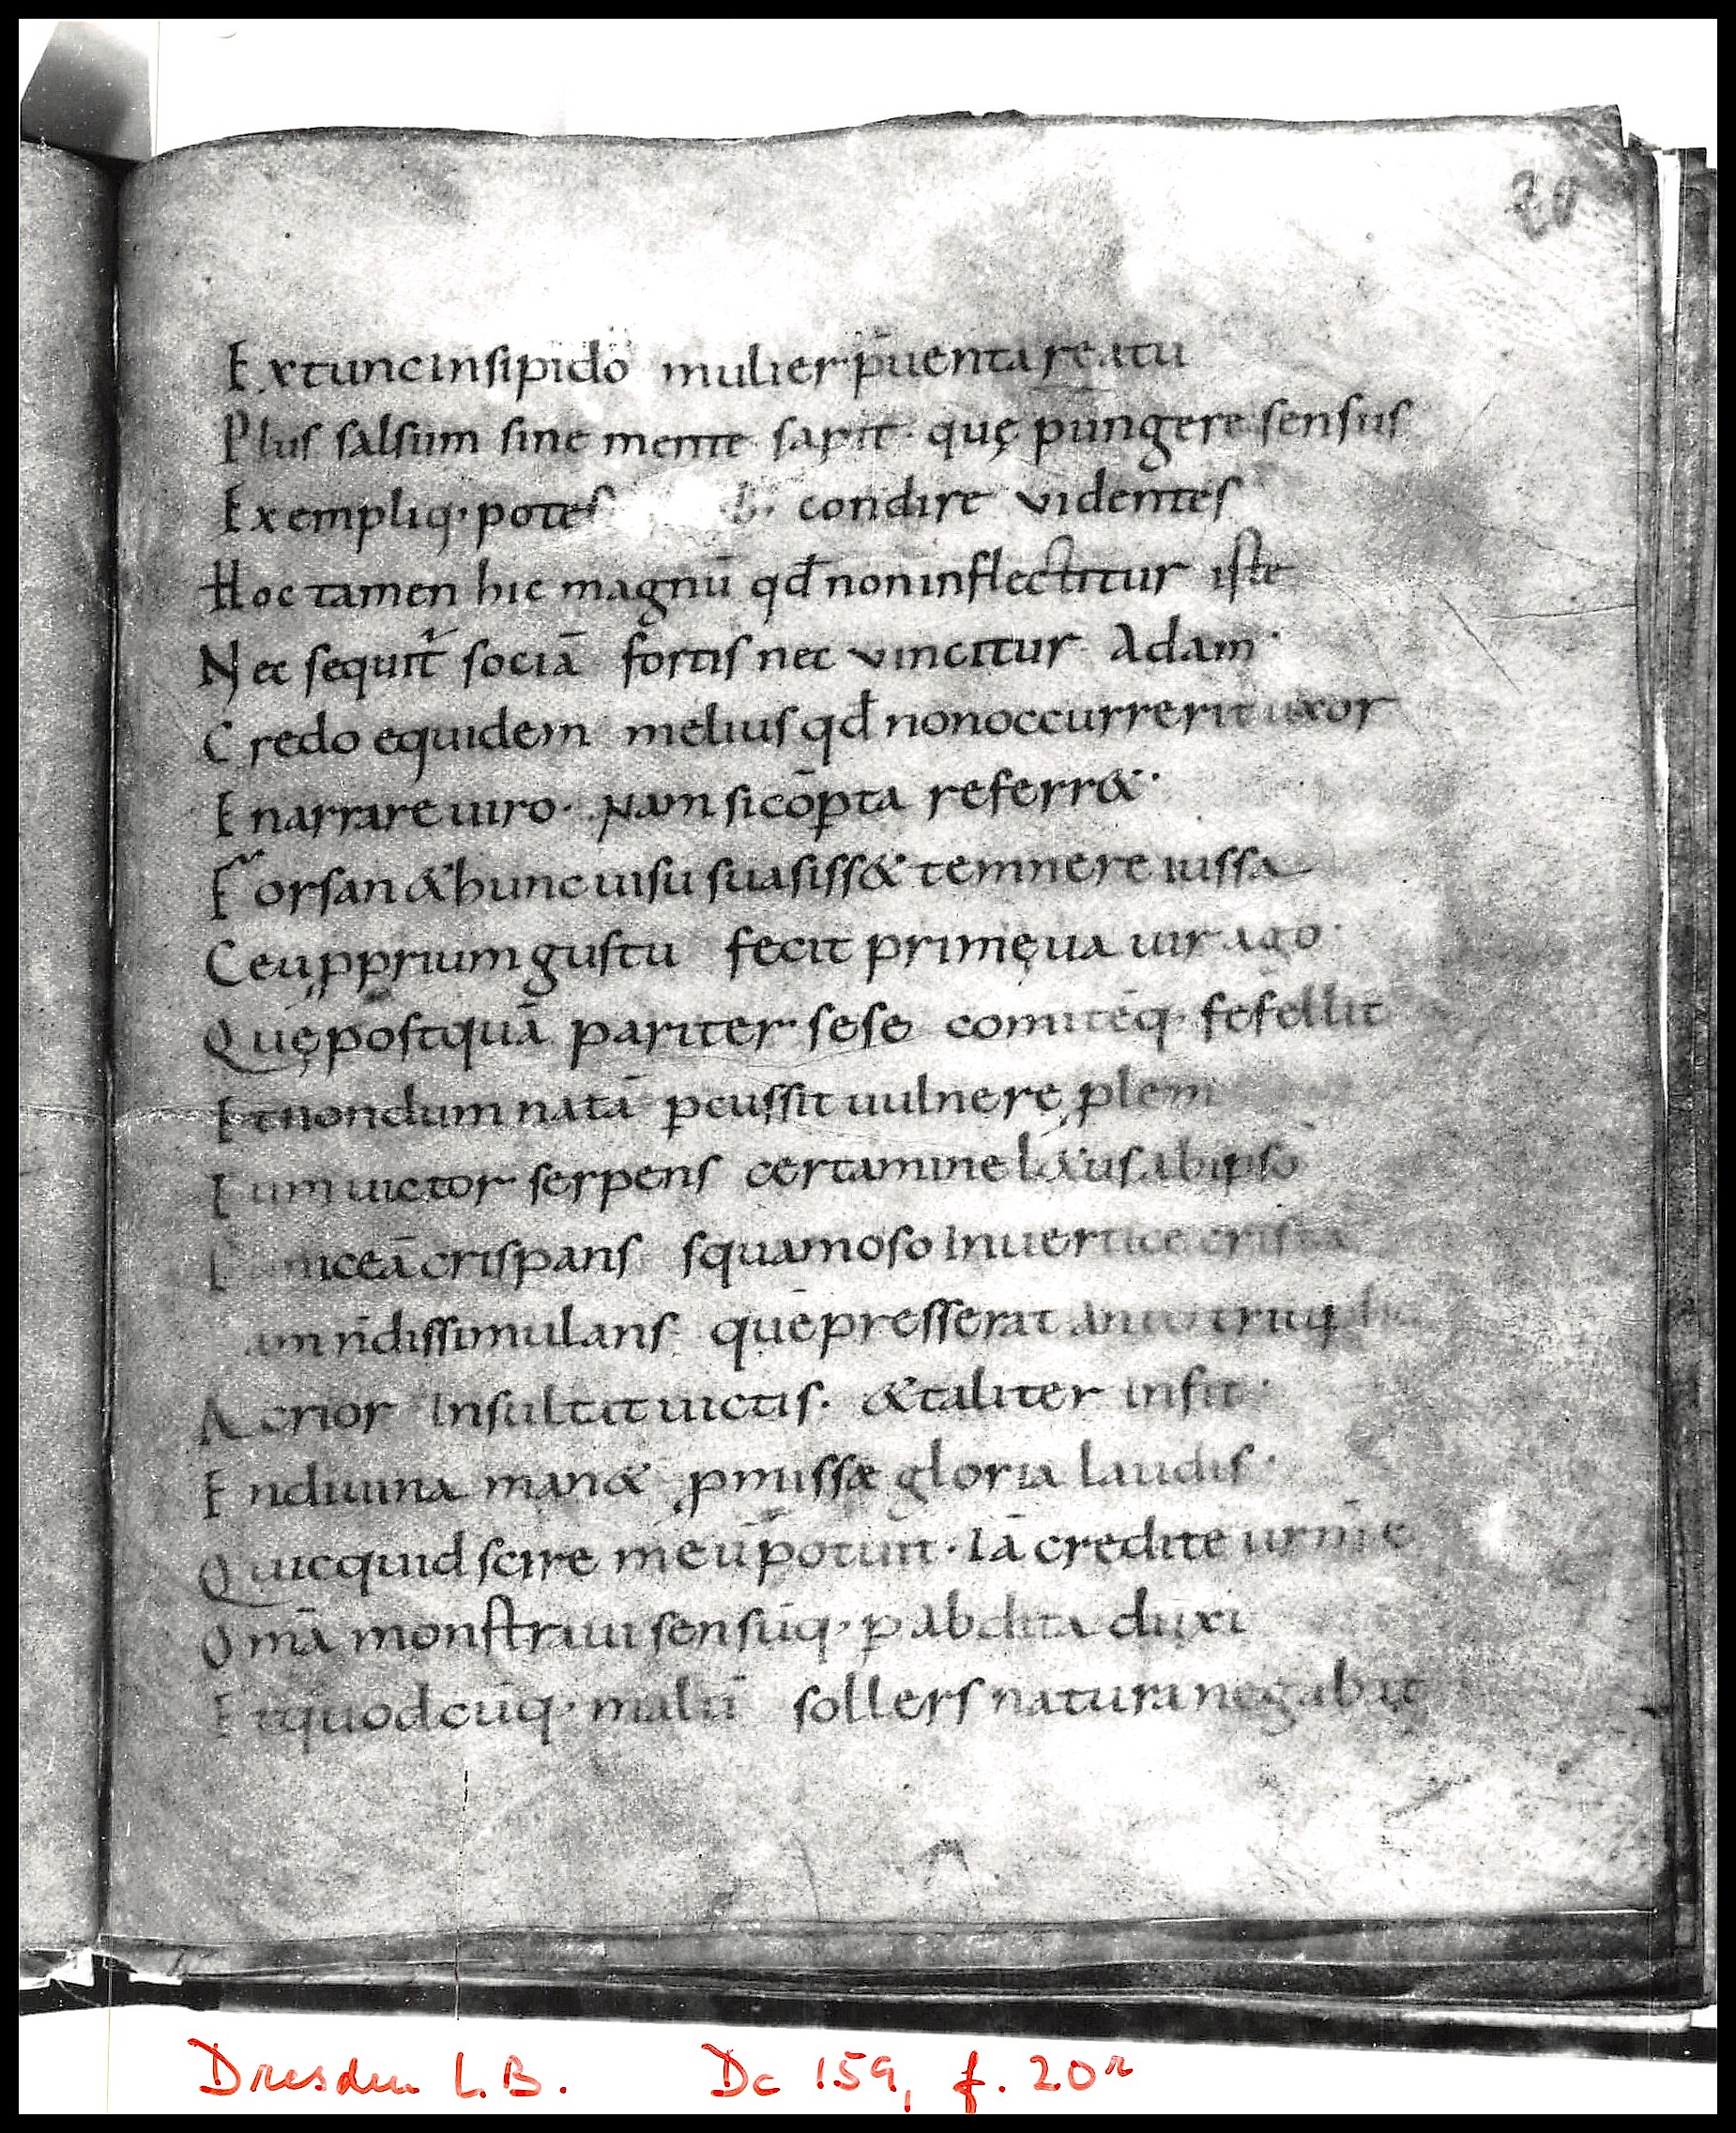 20
Extunc insipido mulier p̄uenta reatu
Plus salsum sine mente sapit · quę pungere sensus
Exempliq· potes b· condire videntes
Hoc tamen hic magnū qđ non inflectitur iste
Nec sequit̄ sociā fortis nec vincitur Adam·
Credo equidem melius qđ non occurrerit uxor
Enarrare uiro· Nam si cōpta referr&·
Forsan & hunc uisu suasiss& temnere iussa
Ceu ꝓprium gustu fecit primęua uirago·
Quę postquā pariter sese comitēq· fefellit
Et nondum natā ꝑcussit uulnere ꝓlem
Tum uictor serpens certamine l&us ab ipso
niceā crispans squamoso in uertice cristā
am n̄ dissimulans quē presserat
Acrior insultit uictis· & taliter infit·
En diuina man& ꝓmissæ gloria laudis·
Quicquid scire meū potuit· Iā credite
Om̄a monstraui sensūq· ꝑ abdita duxi
Et quodcūq· malū sollers natura negabat
Dresden L.B. Dc 159, f. 20r